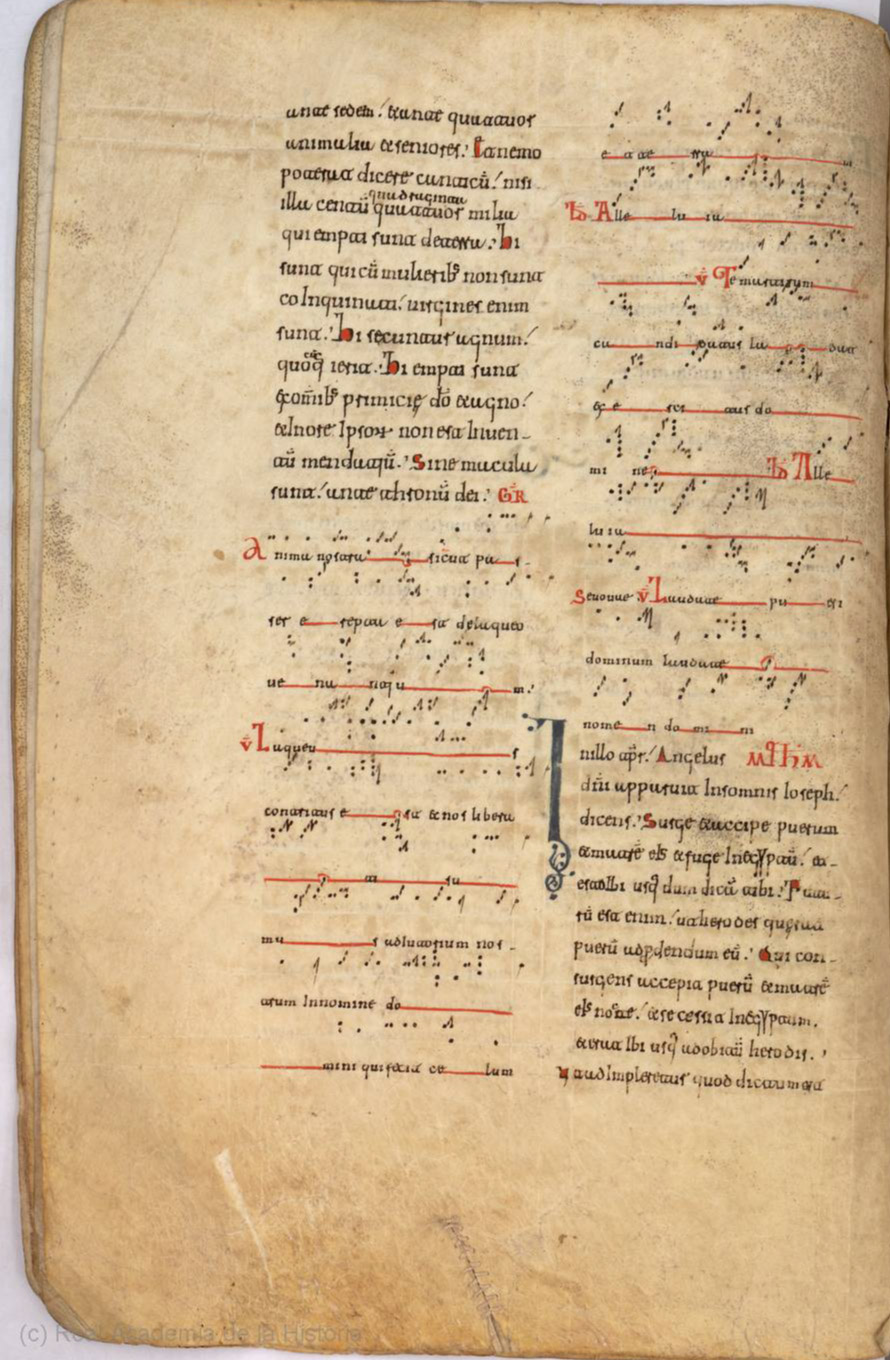 ante sedem / & ante quattuor
animalia & seniores. & nemo
poterat dicere canticū / nisi
illa centū quadraginta quattuor milia
qui empti sunt de terra. Hi
sunt qui cū mulierib; non sunt
coInquinati / uirgines enim
sunt. Hi secuntur agnum /
quocūq; ierit. Hi empti sunt
ex omīb; primicię dō & agno /
& In ore Ipsorum non est Inuen-
tū mendatiū. Sine macula
sunt / ante thronū dei. GR
Anima nostra sicut pas
ser e repta e st de laqueo
ue na nti u m.
V Laqueu s
contritus e st & nos libera
ti su
mu s adiutorium nos-
trum In nomine do
mini qui fecit ce lum
e t te rra m
Alle lu ia
V Te martyrum
can di datus lau dat
ex e rci tus do
mi ne Alle
lu ia
V Laudate pu eri
dominum laudate
nome n do mi ni
In illo tp̄r. Angelus MTHM
dn̄i apparuit In somnis Ioseph /
dicens. Surge & accipe puerum
& matrē eis & fuge In egyptū / &
esto Ibi usq; dum dicā tibi. Futu-
rū est enim / ut herodes querat
puerū ad perdendum eū. Qui con-
surgens accepit puerū & matrē
eis nocte / & secessit In egyptum.
& erat Ibi usq; ad obitū herodis.
ut ad Impleretur quod dictum est
(c) Real Academia de la Historia